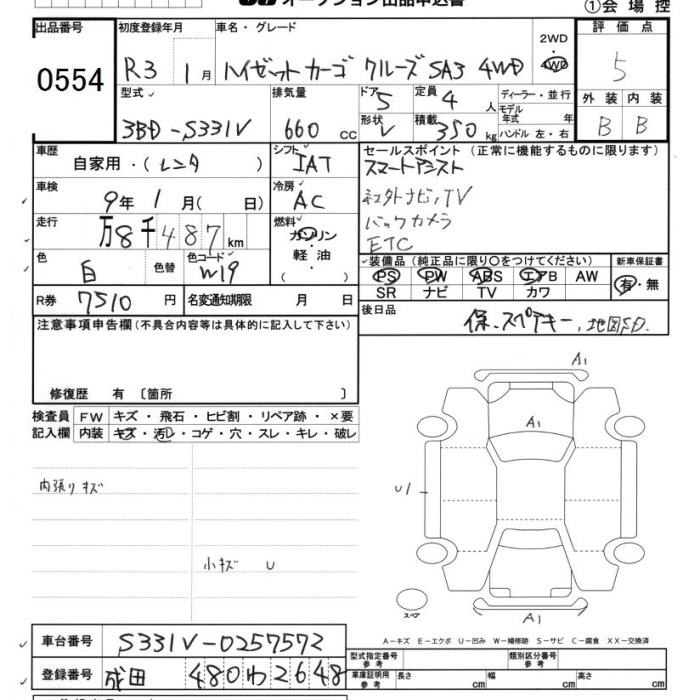 オークション出品申込書
①会場控
出品番号 0554
初度登録年月 R3 1月
車名・グレード ハイゼットカーゴ クルーズ SA3 4WD
2WD
4WD
評価点 5
外装 内装
B B
型式 3BD-S331V
排気量 660 cc
ドア 5
形状 V
定員 4 人
積載 350 kg
ディーラー・並行
モデル年式 年
ハンドル 左・右
車歴 自家用・(レンタ )
シフト IAT
車検 9年 1月( 日)
冷房 AC
走行 万8千487km
燃料 ガソリン・軽油・( )
色 白 色替
色コード W19
R券 7510 円
名変通知期限 月 日
セールスポイント (正常に機能するものに限ります)
スマートアシスト
社外ナビ,TV
バックカメラ
ETC
装備品 (純正品に限り○をつけてください)
PS PW ABS エアB AW
SR ナビ TV カワ
新車保証書
有・無
後日品 保、スペアキー、地図SD.
注意事項申告欄 (不具合内容等は具体的に記入して下さい)
修復歴 有 〔箇所 〕
検査員記入欄
FW キズ・飛石・ヒビ割・リペア跡・×要
内装 キズ・汚レ・コゲ・穴・スレ・キレ・破レ
内張りキズ
小キズ U
A1
A1
U1
スペア
A1
A-キズ E-エクボ U-凹み W-補修跡 S-サビ C-腐食 XX-交換済
車台番号 S331V-0257572
登録番号 成田 480わ2648
型式指定番号 参考
類別区分番号 参考
車庫証明用 参考 長さ cm 幅 cm 高さ cm